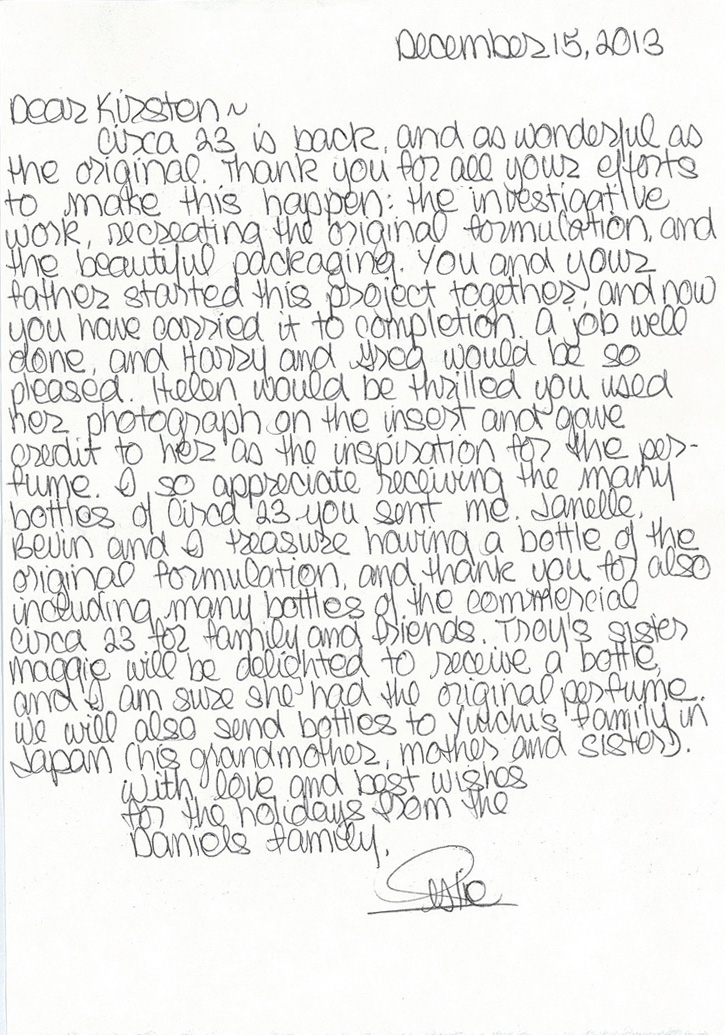 December 15, 2013
Dear Kirsten ~
Circa 23 is back, and as wonderful as
the original. Thank you for all your efforts
to make this happen: the investigative
work, recreating the original formulation, and
the beautiful packaging. You and your
father started this project together, and now
you have carried it to completion. A job well
done, and Harry and Greg would be so
pleased. Helen would be thrilled you used
her photograph on the insert and gave
credit to her as the inspiration for the per-
fume. I so appreciate receiving the many
bottles of Circa 23 you sent me. Janelle,
Bevin and I treasure having a bottle of the
original formulation, and thank you for also
including many bottles of the commercial
Circa 23 for family and friends. Troy's sister
Maggie will be delighted to receive a bottle,
and I am sure she had the original perfume.
We will also send bottles to Yuichi's family in
Japan (his grandmother, mother and sister).
With love and best wishes
for the holidays from the
Daniels family,
Leslie